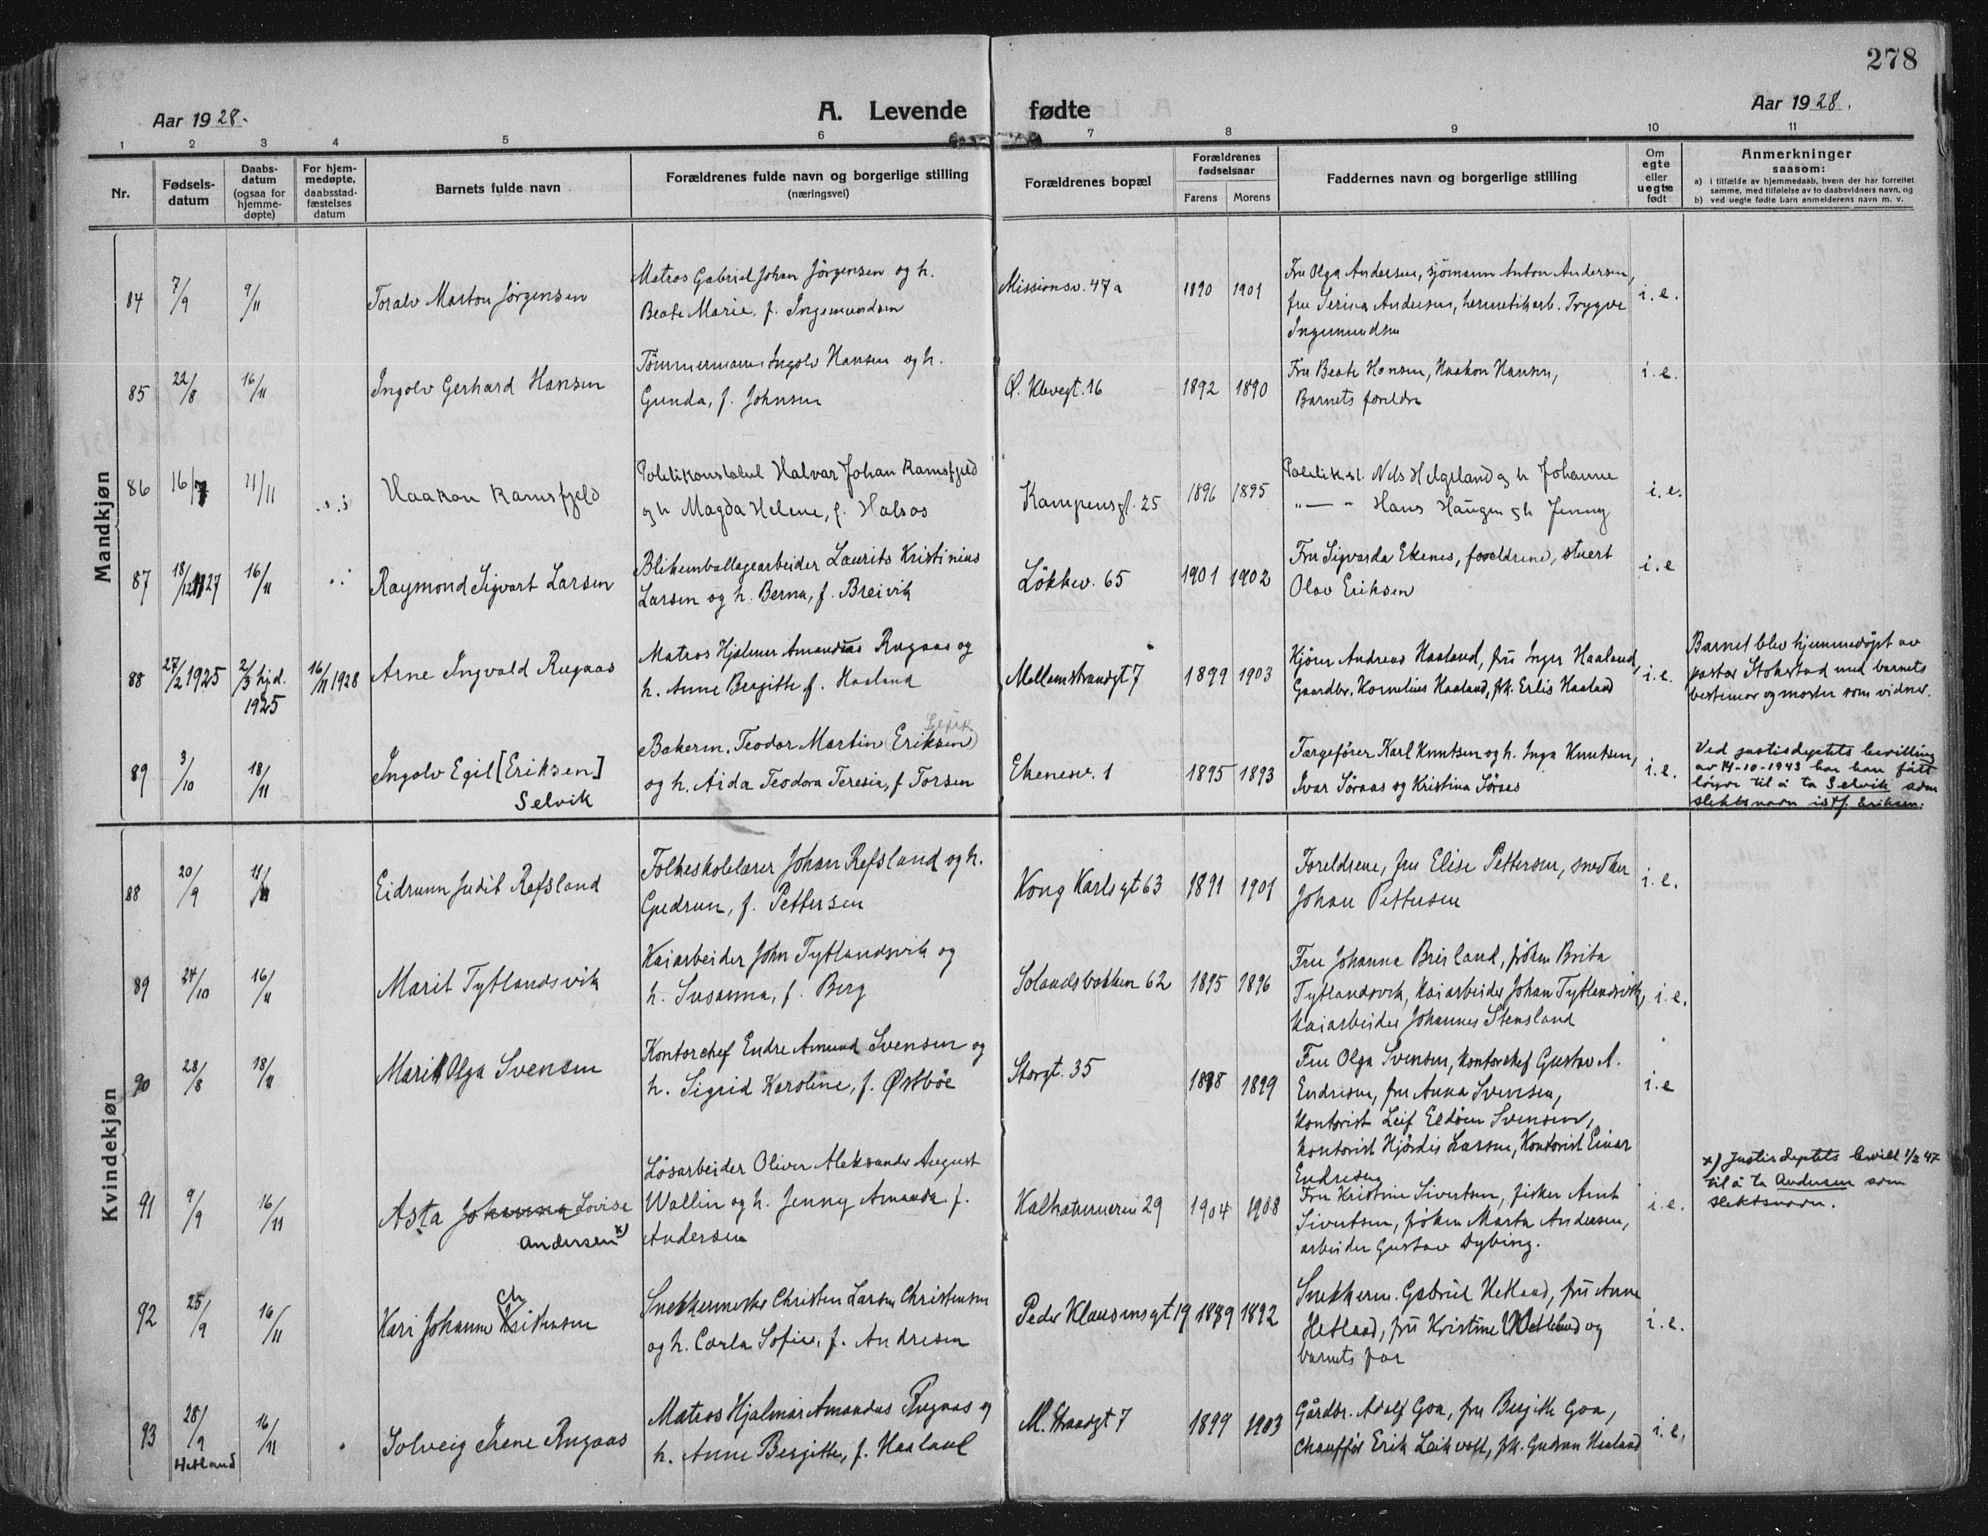 278
Aar 1928.
A. Levende fødte
Aar 1928.
1 2 3 4 5 6 7 8 9 10 11
Nr.
Fødsels-
datum
Daabs-
datum
(ogsaa for
hjemme-
døpte)
For hjem-
medøpte,
daabsstad-
fæstelses
datum
Barnets fulde navn
Forældrenes fulde navn og borgerlige stilling
(næringsvei)
Forældrenes bopæl
Forældrenes
fødselsaar
Farens Morens
Faddernes navn og borgerlige stilling
Om
egte
eller
uegte
født
Anmerkninger
saasom:
a) i tilfælde av hjemmedaab, hvem der har forrettet
samme, med tilføielse av to daabsvidners navn, og
b) ved uegte fødte barn anmelderens navn m. v.
Mandkjøn
84 7/9 9/11 Toralv Marton Jørgensen
Matros Gabriel Johan Jørgensen og h.
Beate Marie, f. Ingemundsen
Missionsv. 47a 1890 1901
Fru Olga Andersen, sjømann Anton Andersen,
fru Serina Andersen, hermetikarb. Trygve
Ingemundsen
i.e.
85 22/8 16/11 Ingolv Gerhard Hansen
Tømmermann Ingolv Hansen og h.
Gunda, f. Johnsen
Ø. Klevegt. 16 1892 1890
Fru Beate Hansen, Haakon Hansen,
Barnets foreldre
i.e.
86 16/7 11/11 Haakon Ramsfjeld
Politikonstabel Halvar Johan Ramsfjeld
og h Magda Helene, f. Halsos
Kampensgt. 25 1896 1895
Politikst. Nels Helgeland og h Johanne
" — - Hans Haugen og h Jenny
i.e.
87 18/12 1927 16/11 Raymond Sigvart Larsen
Blikemballagearbeider Laurits Kristinius
Larsen og h. Berna, f. Breivik
Løkkev. 65 1901 1902
Fru Sigvarda Ekenes, foreldrene, stuert
Olav Eriksen
i.e
88 27/2 1925 2/3 hjd. 1925 16/11 1928 Arne Ingvald Rugaas
Matros Hjalmar Amandus Rugaas og
h. Anne Bergitte f. Haaland
Mellemstrandgt 7 1899 1903
Kjører Andreas Haaland, fru Inger Haaland,
Gaardbr. Kornelius Haaland, frk. Erlis Haaland
i.e.
Barnet blev hjemmedøpt av
pastor Stokstad med barnets
bestemor og moster som vidner.
89 3/10 18/11 Ingolv Egil [Eriksen]
Selvik
Bakerm. Teodor Martin (Eriksen) Selvik
og h. Aida Teodora Teresia, f. Torsen
Ekenesv. 1 1895 1893
Fargefører Karl Knutsen og h. Inga Knutsen,
Ivar Søraas og Kristina Søraas
i.e.
Ved justisdeptets bevilling
av 14-10-1943 har han fått
løyve til å ta Selvik som
slektsnavn istf. Eriksen.
Kvindekjøn
88 20/9 11/11 Eidrunn Judit Refsland
Folkeskolelærer Johan Refsland og h.
Gudrun, f. Pettersen
Kong Karlsgt 63 1891 1901
Foreldrene, fru Elise Pettersen, snedker
Johan Pettersen
i.e.
89 24/10 16/11 Marit Tytlandsvik
Kaiarbeider John Tytlandsvik og
h. Susanna, f. Berg
Solandsbakken 62 1895 1896
Fru Johanna Breiland, frøken Brita
Tytlandsvik, kaiarbeider Johan Tytlandsvik,
kaiarbeider Johannes Stensland
i.e.
90 28/8 18/11 Marit Olga Svensen
Kontorchef Endre Amund Svensen og
h. Sigrid Karoline, f. Østbøe
Storgt. 35 1898 1899
Fru Olga Svensen, kontorchef Gustav A.
Endresen, fru Anna Svensen,
kontorist Leif Eldøen Svensen,
kontorist Hjørdis Larsen, Kontorist Einar
Endresen
i.e
91 9/9 16/11 Asta Johanna Lovise
Andersen x)
Løsarbeider Oliver Aleksander August
Wallin og h. Jenny Amanda f.
Andersen
Kalhammeren 29 1904 1908
Fru Kristine Sivertsen, fisker Arnt
Sivertsen, frøken Marta Andersen,
arbeider Gustav Dybing.
i.e.
x) Justisdeptets bevill 1/2 47
til å ta Andersen som
slektsnavn.
92 25/9 16/11 Kari Johanne Christensen
Snekkermester Christen Larsen Christensen
og h. Carla Sofie, f. Andresen
Peder Klausensgt 19 1889 1892
Snekkerm. Gabriel Hetland, fru Anne
Hetland, fru Kristine Hetland og
barnets far
i.e.
93 28/9 Hetland 16/11 Solveig Irene Rugaas
Matros Hjalmar Amandus Rugaas og
h. Anne Bergitte, f. Haaland
M. Strandgt 7 1899 1903
Gårdbr. Adolf Goa, fru Bergitte Goa,
chauffør Erik Leikvoll, frk. Gudrun Haaland
i.e.